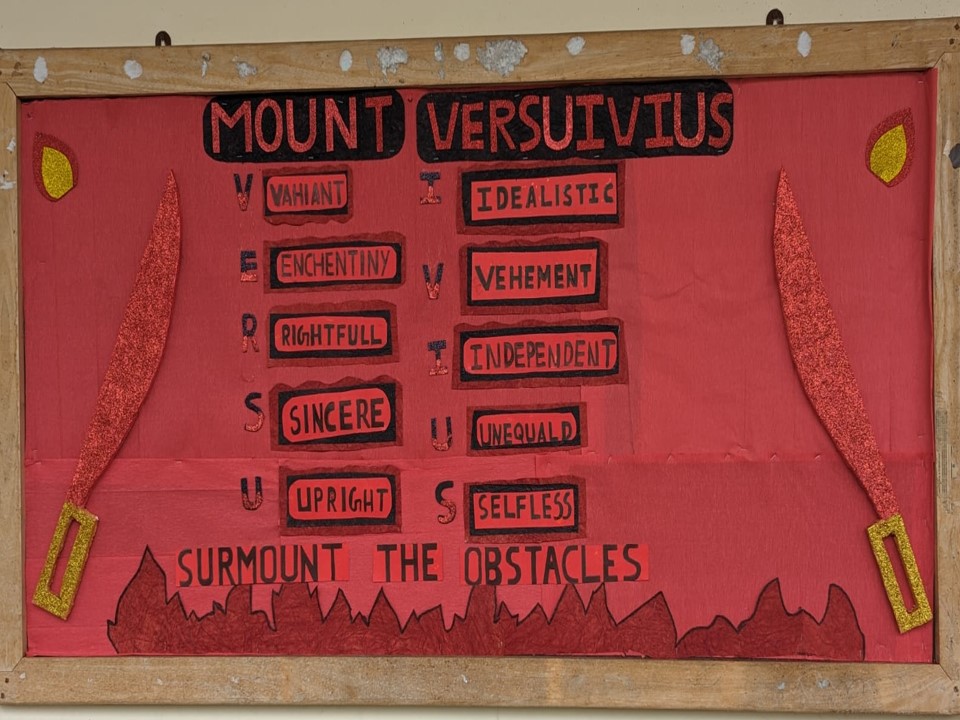 MOUNT VERSUIVIUS
V VAHIANT
E ENCHENTINY
R RIGHTFULL
S SINCERE
U UPRIGHT
I IDEALISTIC
V VEHEMENT
I INDEPENDENT
U UNEQUALD
S SELFLESS
SURMOUNT THE OBSTACLES